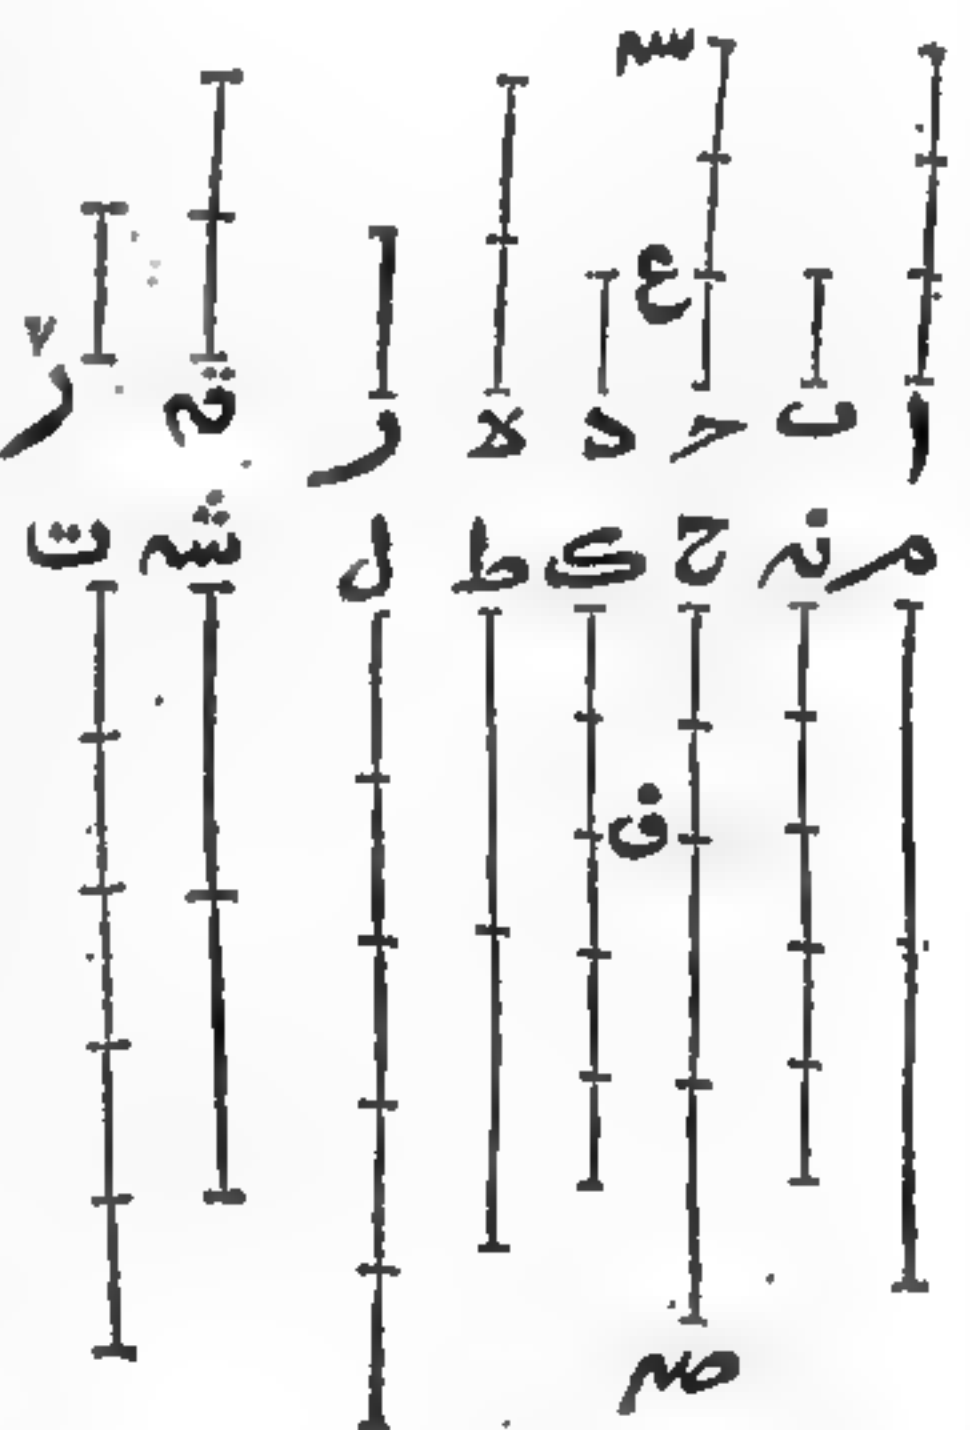 س
ع
ا ٮ ح د ه ر ق ر
م ن ح ك ط ل ش ت
ف
ص